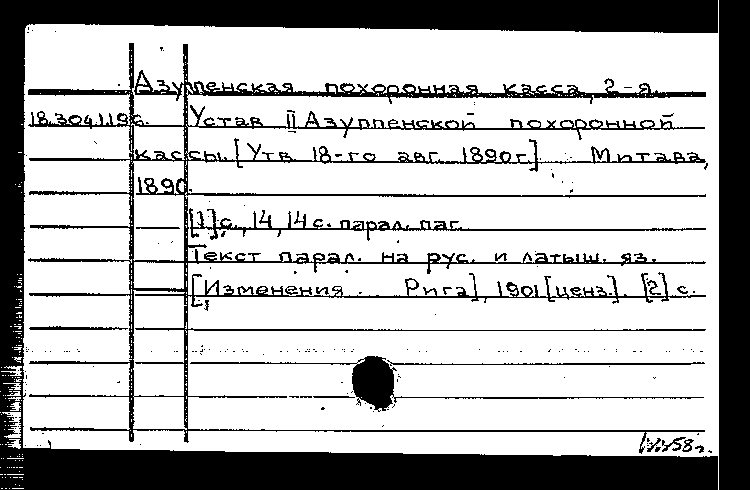 Азуппенская похоронная касса, 2-я.
18.304.1.196. Устав II Азуппенской похоронной
кассы. [Утв. 18-го авг. 1890г.] Митава,
1890.
[1] с., 14, 14 с. парал. паг.
Текст парал. на рус. и латыш. яз.
[Изменения. Рига], 1901 [ценз.]. [2] с.
58 г.